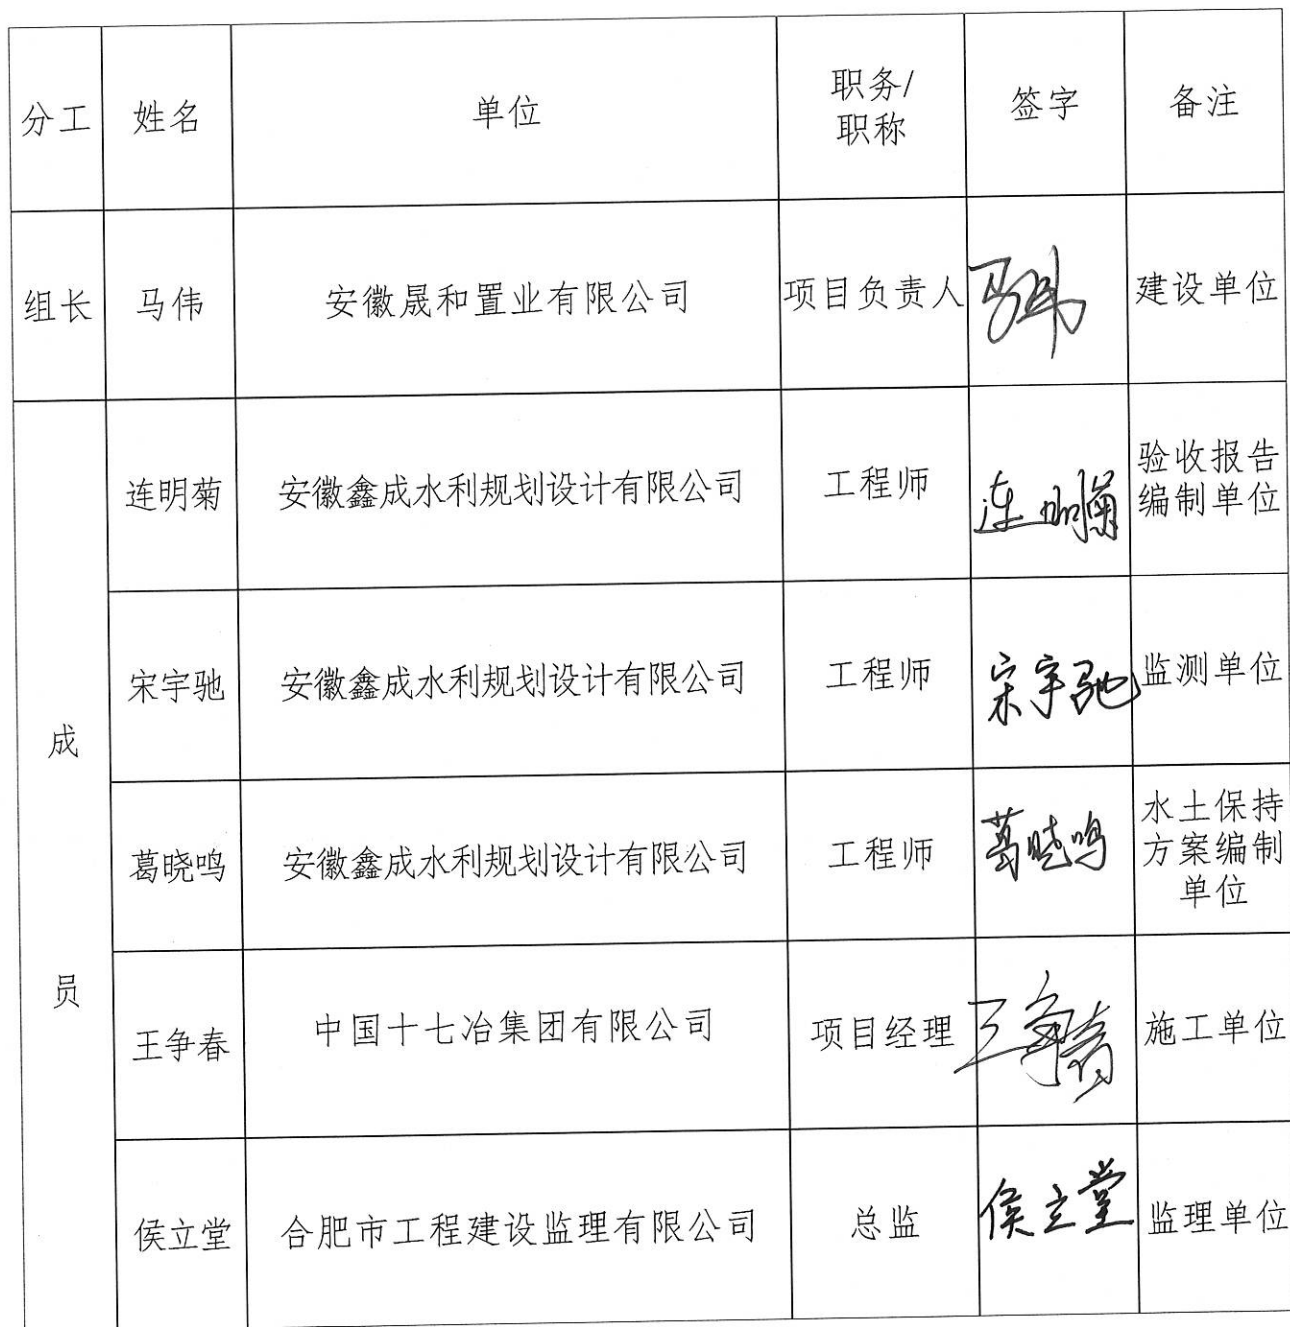 分工 姓名 单位 职务/职称 签字 备注
组长 马伟 安徽晟和置业有限公司 项目负责人 马伟 建设单位
成员
连明菊 安徽鑫成水利规划设计有限公司 工程师 连明菊 验收报告编制单位
宋宇驰 安徽鑫成水利规划设计有限公司 工程师 宋宇驰 监测单位
葛晓鸣 安徽鑫成水利规划设计有限公司 工程师 葛晓鸣 水土保持方案编制单位
王争春 中国十七冶集团有限公司 项目经理 王争春 施工单位
侯立堂 合肥市工程建设监理有限公司 总监 侯立堂 监理单位